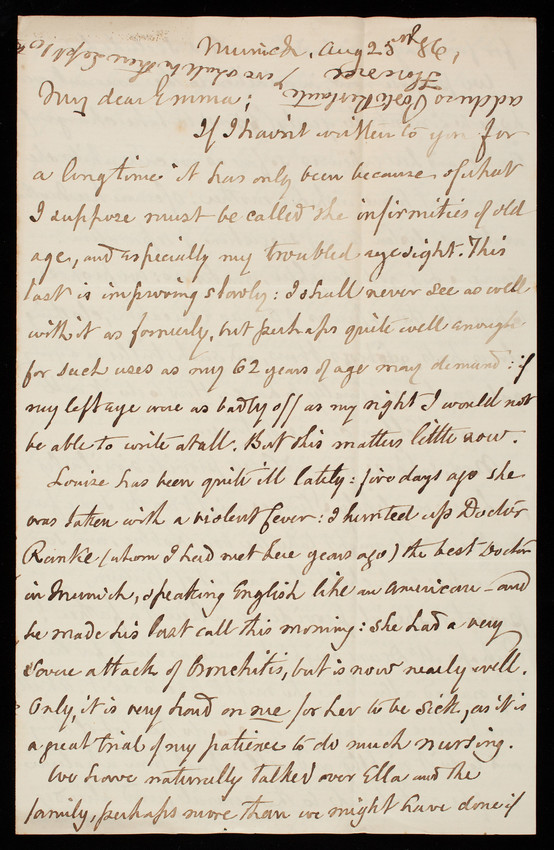 Munich, Aug 25th 86,
address Poste Restante
Florence
My dear Emma;
If I havn't written to you for
a long time it has only been because of what
I suppose must be called the infirmities of old
age, and especially my troubled eyesight. This
last is improving slowly: I shall never see as well
with it as formerly, but perhaps quite well enough
for such uses as my 62 years of age may demand: if
my left eye were as badly off as my right I would not
be able to write at all. But this matters little now.
Louise has been quite ill lately: five days ago she
was taken with a violent fever: I hunted up Doctor
Ranke (whom I had met here years ago) the best Doctor
in Munich, speaking English like an American - and
he made his last call this morning: She had a very
severe attack of Bronchitis, but is now nearly well.
Only, it is very hard on me for her to be sick, as it is
a great trial of my patience to do much nursing.
We have naturally talked over Ella and the
family, perhaps more than we might have done if